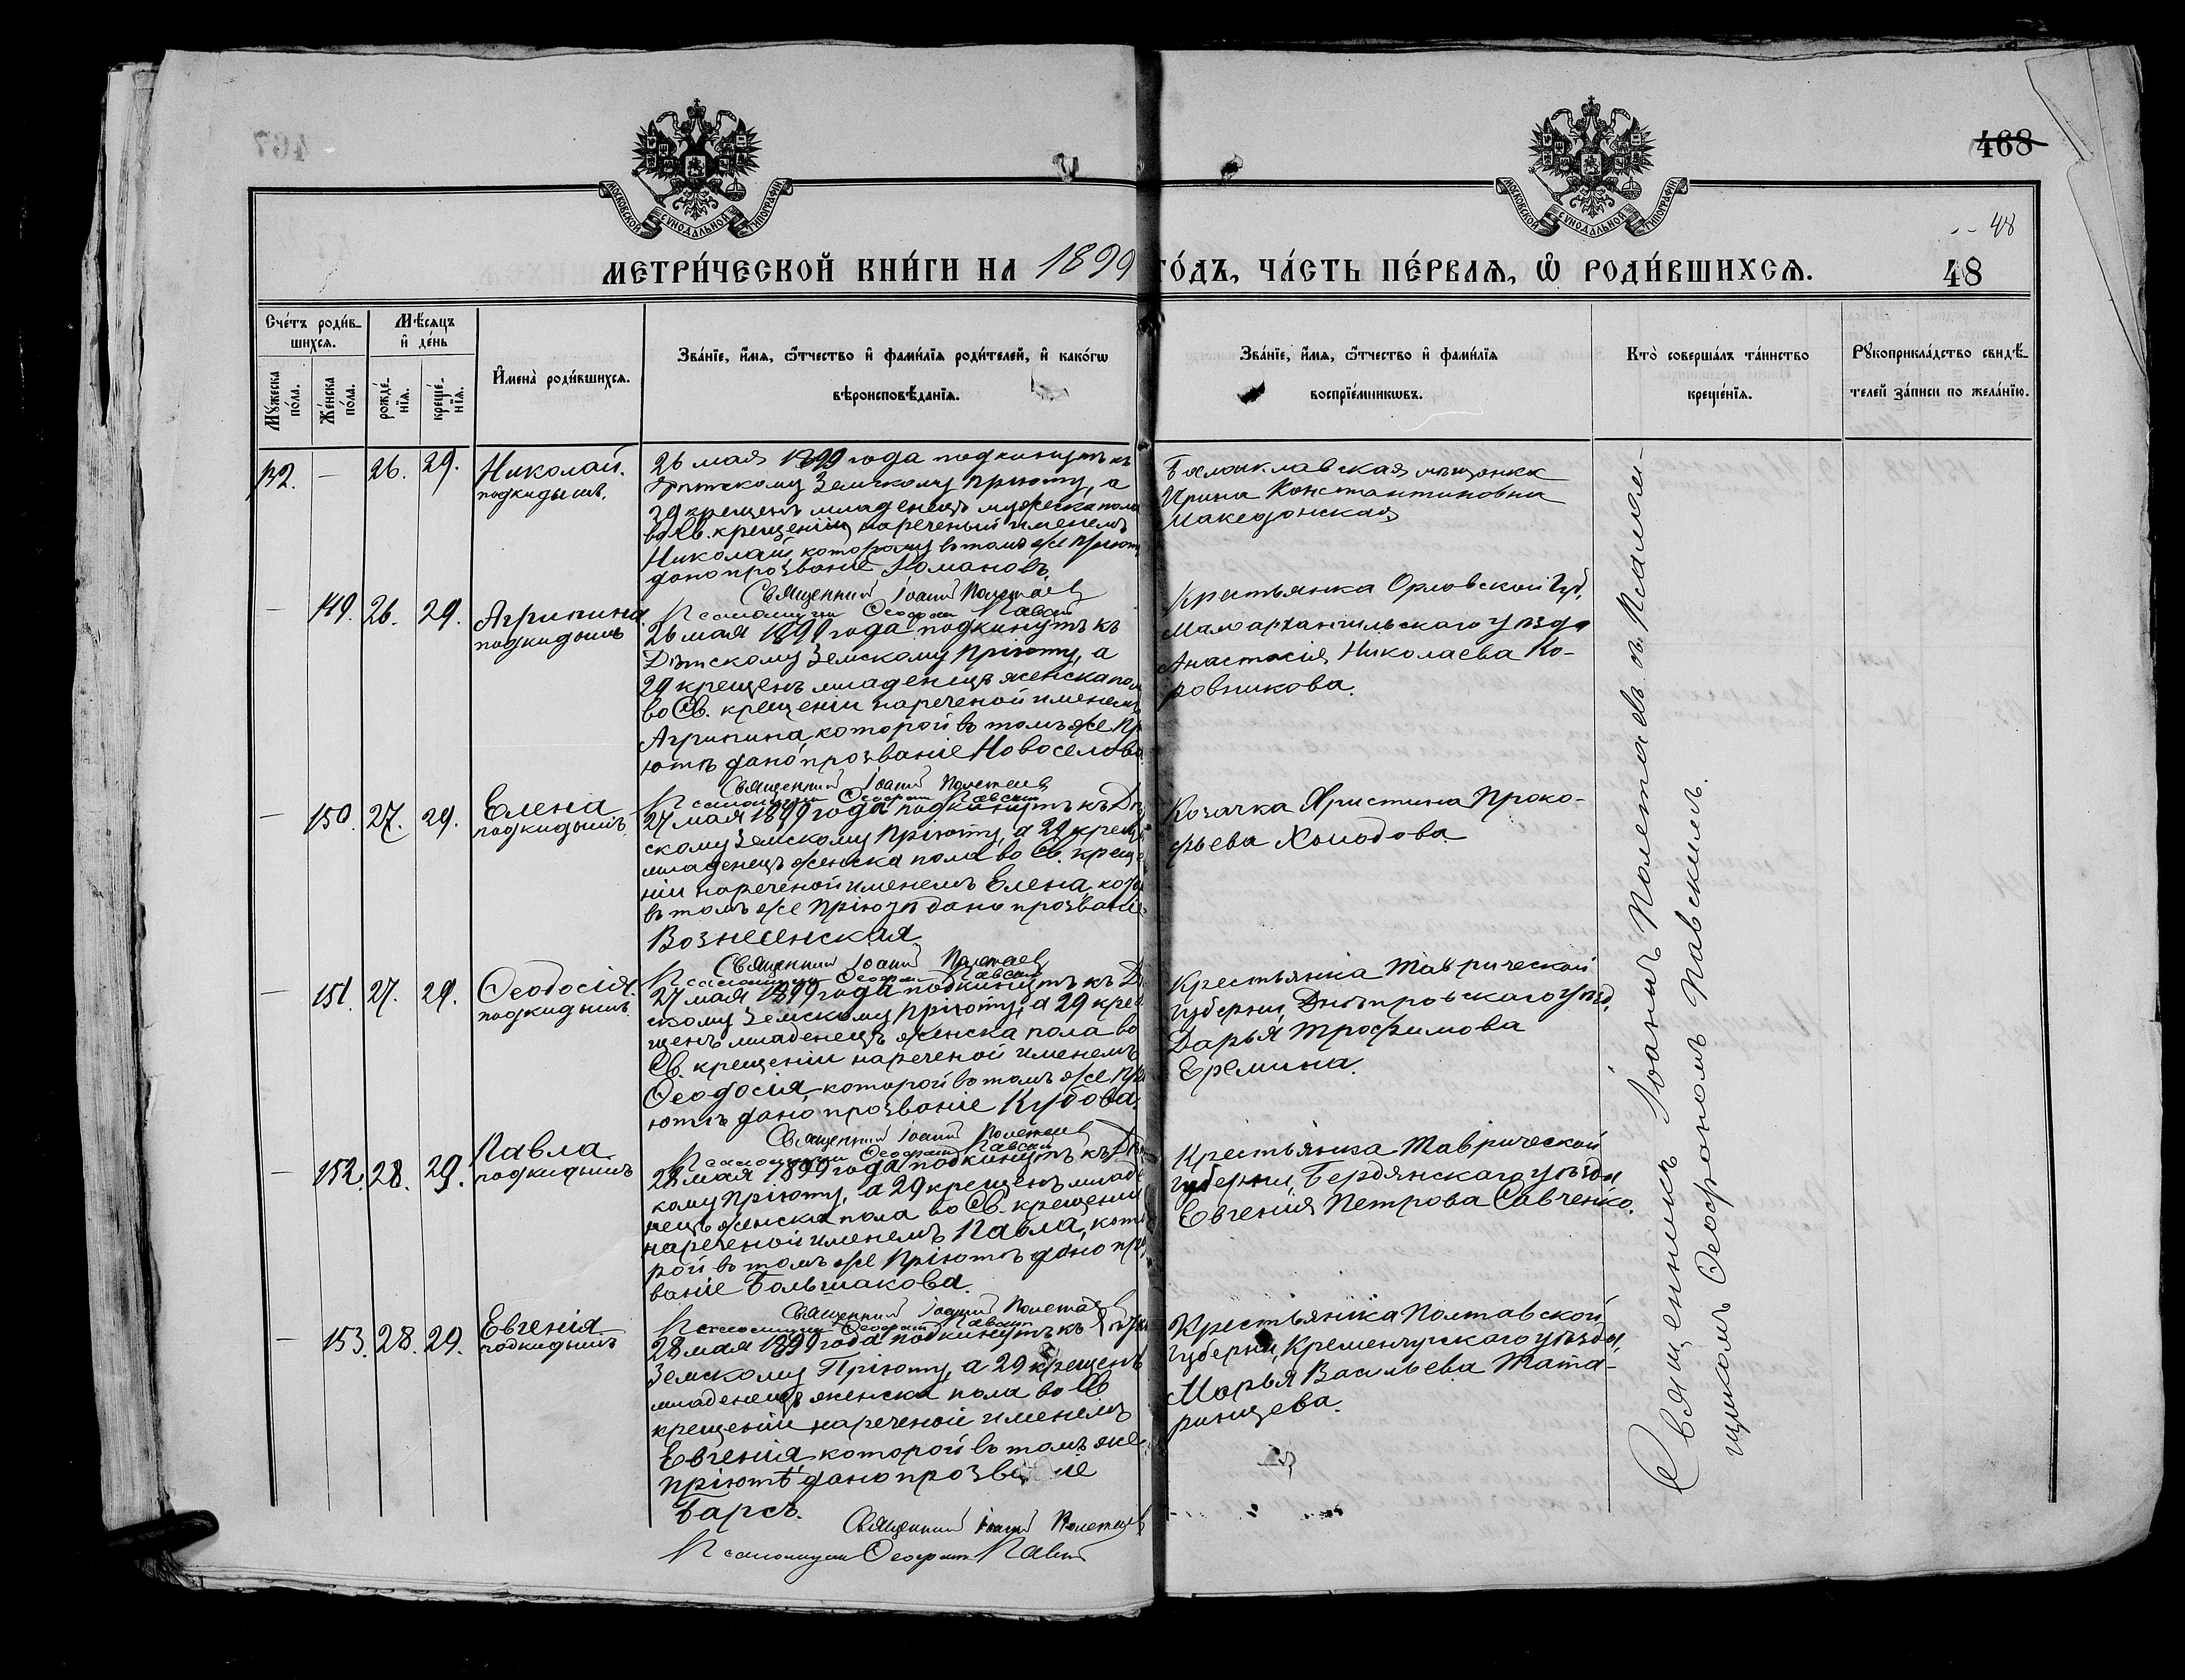 468
48
МОСКОВСКОЙ СУНОДАЛЬНОЙ ТИПОГРАФІИ
МОСКОВСКОЙ СУНОДАЛЬНОЙ ТИПОГРАФІИ
МЕТРИ́ЧЕСКОЙ КНИ́ГИ НА 1899 ГО́ДЪ, ЧА́СТЬ ПЕ́РВАѦ, Ѡ҆ РОДИ́ВШИХСѦ.
48
Сче́тъ роди́в-
шихсѧ.
Мꙋ́жеска по́ла.
Же́нска по́ла.
Мѣ́сѧцъ и҆ де́нь
рожде́-нїѧ.
креще́-нїѧ.
И҆мена̀ роди́вшихсѧ.
Зва́нїе, и҆́мѧ, ѻ҆́тчество и҆ фами́лїѧ роди́телей, и҆ како́гѡ
вѣроисповѣ́данїѧ.
Зва́нїе, и҆́мѧ, ѻ҆́тчество и҆ фами́лїѧ
воспрїе́мникѡвъ.
Кто̀ соверша́лъ та́инство
креще́нїѧ.
Рꙋкоприкла́дство свидѣ́-
телей за́писи по жела́нїю.
132. — 26. 29. Николай.
подкидышъ.
26 мая 1899 года подкинутъ къ
Дѣтскому Земскому Пріюту, а
29 крещенъ младенецъ мужеска пола
во Св. крещеніи нареченый именемъ
Николай, которому въ томъ же Пріютѣ
дано прозваніе Романовъ.
Священник Іоаннъ Полетаев
Псаломщик Ѳеофан Павский
Балаклавская мѣщанка
Ирина Константиновна
Македонская
— 149. 26. 29. Агрипина
подкидышъ
26 мая 1899 года подкинутъ къ
Дѣтскому Земскому Пріюту, а
29 крещенъ младенецъ женска пола
во Св. крещеніи нареченой именемъ
Агрипина, которой въ томъ же Прі
ютѣ дано прозваніе Новоселова.
Священник Іоаннъ Полетаев
Псаломщик Ѳеофан Павский
Крестьянка Орловской Губ,
Малоархангильскаго уѣзда
Анастасія Николаева Ко-
ровникова.
— 150. 27. 29. Елена
подкидышъ
27 мая 1899 года подкинутъ къ Дѣт
скому Земскому Пріюту, а 29 крещ
младенецъ женска пола во Св. креще
ніи нареченой именемъ Елена, кото
въ томъ же Пріютѣ дано прозваніе
Вознесенская
Священник Іоаннъ Полетаев
Псаломщик Ѳеофан Павский
Козачка Христина Проко-
фьева Холодова.
— 151. 27. 29. Ѳеодосія.
подкидышъ
27 мая 1899 года подкинутъ къ Дѣ
скому Земскому Пріюту, а 29 кре
щенъ младенецъ женска пола во
Св. крещеніи нареченой именемъ
Ѳеодосія, которой въ томъ же Прі
ютѣ дано прозваніе Кубова.
Священник Іоаннъ Полетаев
Псаломщик Ѳеофан Павский
Крестьянка Таврической
губерни, Днѣпровскаго уѣзд,
Дарья Трофимова
Еремина.
— 152. 28. 29. Павла
подкидышъ
28 мая 1899 года подкинутъ къ Дѣтс
кому Пріюту, а 29 крещенъ младе
нецъ женска пола во Св. крещеніи
нареченой именемъ Павла, кото
рой въ томъ же Пріютѣ дано проз
ваніе Большакова.
Священник Іоаннъ Полетаев
Псаломщик Ѳеофан Павский
Крестьянка Таврической
губерни, Бердянскаго уѣзда
Евгенія Петрова Савченко.
— 153. 28. 29. Евгенія
подкидышъ
28 мая 1899 года подкинутъ къ Дѣтск
Земскому Пріюту, а 29 крещенъ
младенецъ женска пола во Св
крещеніи нареченой именемъ
Евгенія, которой въ томъ же
пріютѣ дано прозваніе
Барсъ.
Священник Іоаннъ Полетаев
Псаломщик Ѳеофан Павский
Крестьянка Полтавской
губерни, Кременчугскаго уѣзда,
Марья Васильева Тата-
ринцева.
Священникъ Іоаннъ Полетаевъ съ Псалом-
щикомъ Ѳеофаномъ Павскимъ.